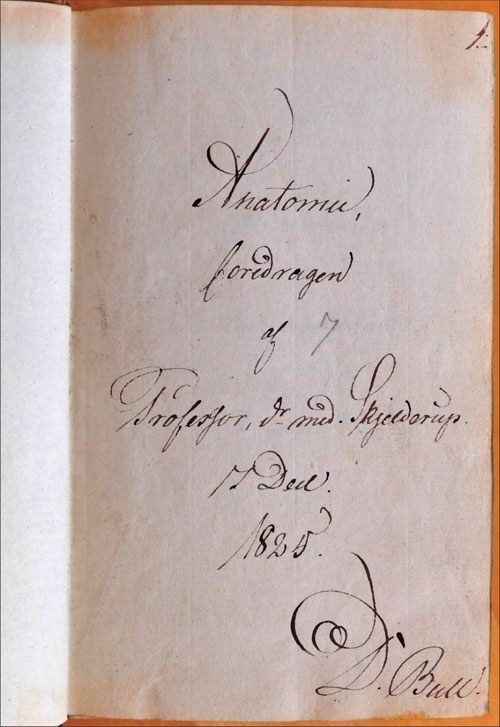 1.
Anatomie,
foredragen
af 7
Professor, dr med. Skjelderup.
Deel.
1825.
D. Bull.